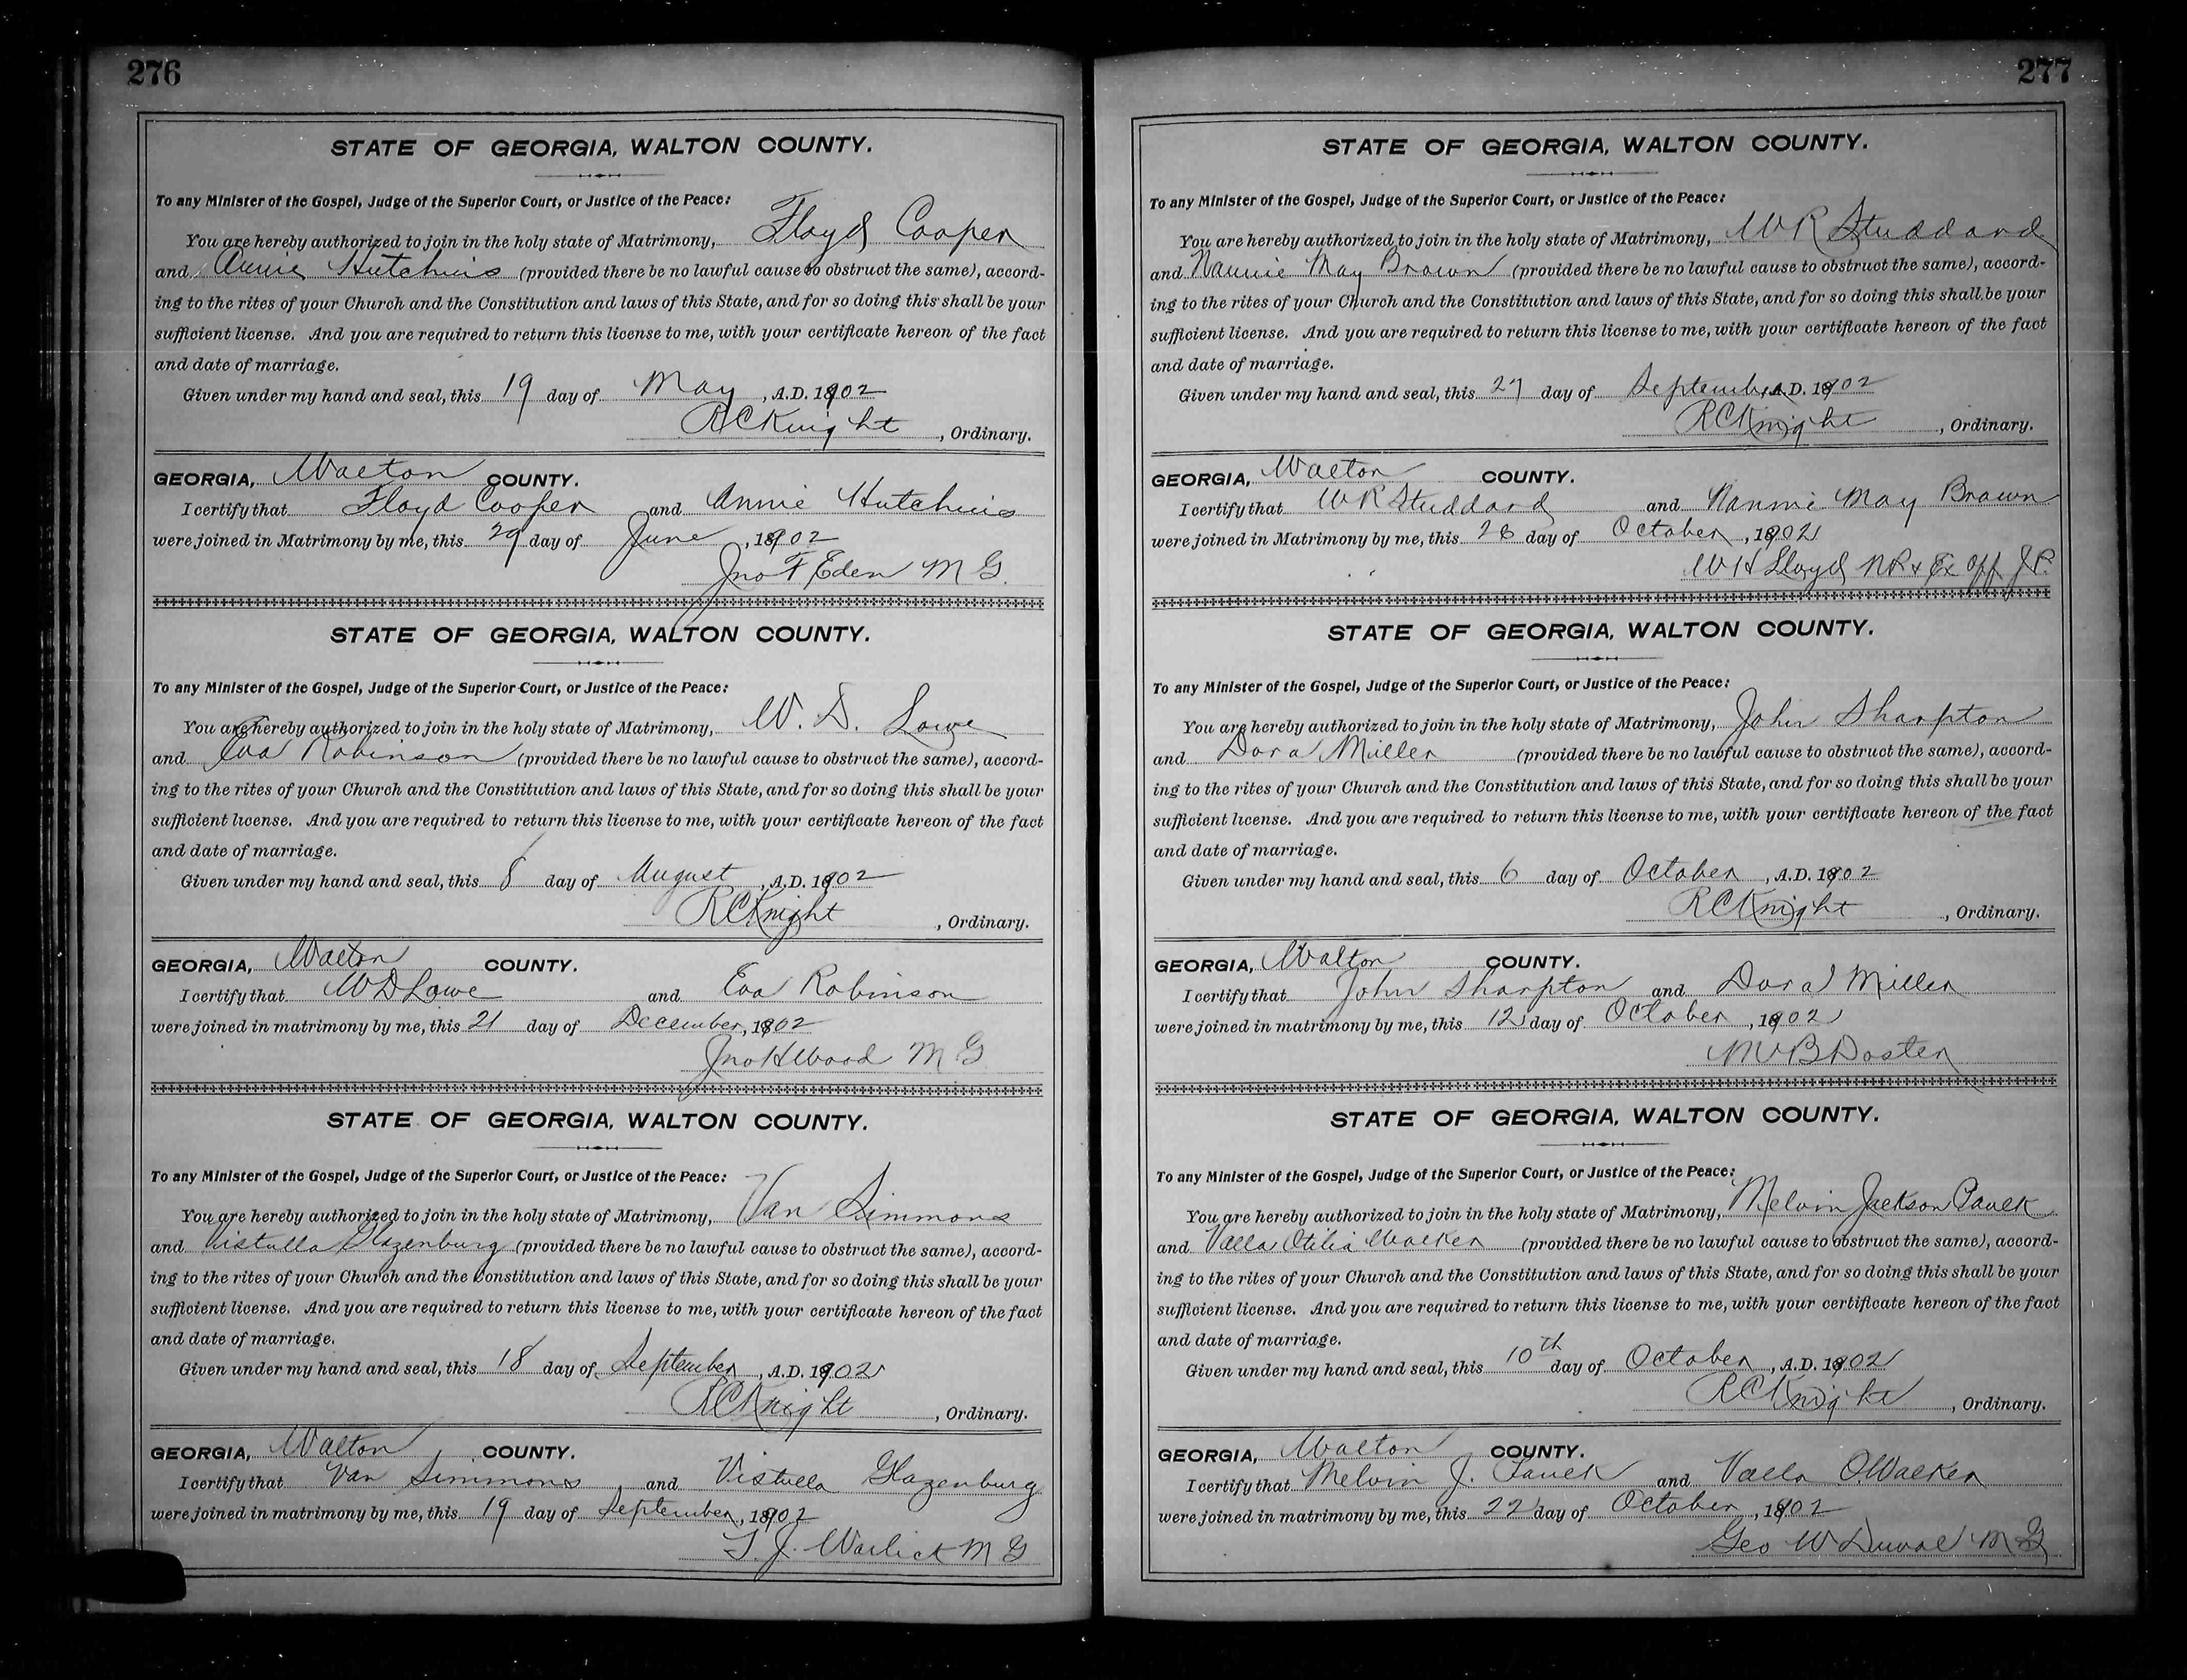 276
STATE OF GEORGIA, WALTON COUNTY.
To any Minister of the Gospel, Judge of the Superior Court, or Justice of the Peace:
You are hereby authorized to join in the holy state of Matrimony, Floyd Cooper
and Annie Hutchins (provided there be no lawful cause to obstruct the same), accord-
ing to the rites of your Church and the Constitution and laws of this State, and for so doing this shall be your
sufficient license. And you are required to return this license to me, with your certificate hereon of the fact
and date of marriage.
Given under my hand and seal, this 19 day of May, A.D. 1902
R C Knight, Ordinary.
GEORGIA, Walton COUNTY.
I certify that Floyd Cooper and Annie Hutchins
were joined in Matrimony by me, this 29 day of June, 1902
Jno F Eden M G.
STATE OF GEORGIA, WALTON COUNTY.
To any Minister of the Gospel, Judge of the Superior Court, or Justice of the Peace:
You are hereby authorized to join in the holy state of Matrimony, W. D. Lowe
and Eva Robinson (provided there be no lawful cause to obstruct the same), accord-
ing to the rites of your Church and the Constitution and laws of this State, and for so doing this shall be your
sufficient license. And you are required to return this license to me, with your certificate hereon of the fact
and date of marriage.
Given under my hand and seal, this 8 day of August, A.D. 1902
R C Knight, Ordinary.
GEORGIA, Walton COUNTY.
I certify that W D Lowe and Eva Robinson
were joined in matrimony by me, this 21 day of December, 1902
Jno H Wood M G
STATE OF GEORGIA, WALTON COUNTY.
To any Minister of the Gospel, Judge of the Superior Court, or Justice of the Peace:
You are hereby authorized to join in the holy state of Matrimony, Van Simmons
and Vistulla Glazenburg (provided there be no lawful cause to obstruct the same), accord-
ing to the rites of your Church and the Constitution and laws of this State, and for so doing this shall be your
sufficient license. And you are required to return this license to me, with your certificate hereon of the fact
and date of marriage.
Given under my hand and seal, this 18 day of September, A.D. 1902
R C Knight, Ordinary.
GEORGIA, Walton COUNTY.
I certify that Van Simmons and Vistulla Glazenburg
were joined in matrimony by me, this 19 day of September, 1902
T. J. Warlick M G
277
STATE OF GEORGIA, WALTON COUNTY.
To any Minister of the Gospel, Judge of the Superior Court, or Justice of the Peace:
You are hereby authorized to join in the holy state of Matrimony, W R Studdard
and Nannie May Brown (provided there be no lawful cause to obstruct the same), accord-
ing to the rites of your Church and the Constitution and laws of this State, and for so doing this shall be your
sufficient license. And you are required to return this license to me, with your certificate hereon of the fact
and date of marriage.
Given under my hand and seal, this 27 day of September A.D. 1902
R C Knight, Ordinary.
GEORGIA, Walton COUNTY.
I certify that W R Studdard and Nannie May Brown
were joined in Matrimony by me, this 28 day of October, 1902
W H Lloyd N P & Ex Off J. P.
STATE OF GEORGIA, WALTON COUNTY.
To any Minister of the Gospel, Judge of the Superior Court, or Justice of the Peace:
You are hereby authorized to join in the holy state of Matrimony, John Sharpton
and Dora Miller (provided there be no lawful cause to obstruct the same), accord-
ing to the rites of your Church and the Constitution and laws of this State, and for so doing this shall be your
sufficient license. And you are required to return this license to me, with your certificate hereon of the fact
and date of marriage.
Given under my hand and seal, this 6 day of October, A.D. 1902
R C Knight, Ordinary.
GEORGIA, Walton COUNTY.
I certify that John Sharpton and Dora Miller
were joined in matrimony by me, this 12 day of October, 1902
M V B Doster
STATE OF GEORGIA, WALTON COUNTY.
To any Minister of the Gospel, Judge of the Superior Court, or Justice of the Peace:
You are hereby authorized to join in the holy state of Matrimony, Melvin Jackson Paulk
and Valla Otilia Walker (provided there be no lawful cause to obstruct the same), accord-
ing to the rites of your Church and the Constitution and laws of this State, and for so doing this shall be your
sufficient license. And you are required to return this license to me, with your certificate hereon of the fact
and date of marriage.
Given under my hand and seal, this 10th day of October, A.D. 1902
R C Knight, Ordinary.
GEORGIA, Walton COUNTY.
I certify that Melvin J. Paulk and Valla O. Walker
were joined in matrimony by me, this 22 day of October, 1902
Geo W Duval M G